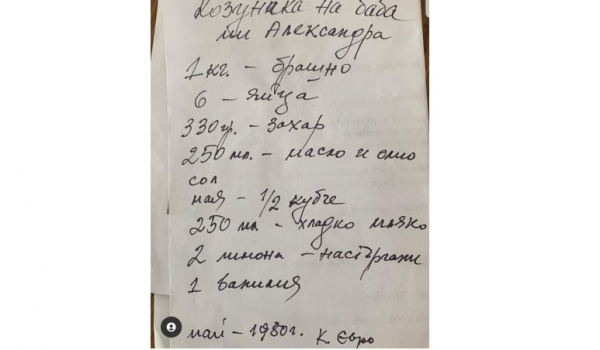 Козунака на баба
ми Александра
1 кг. – брашно
6 – яйца
330 гр. – захар
250 мл. – масло и олио
сол
мая – 1/2 кубче
250 мл – хладко мляко
2 лимона – настъргани
1 ванилия
май – 1980г. К. Євро